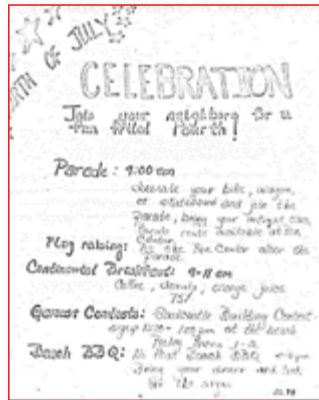 FOURTH OF JULY
CELEBRATION
Join your neighbors for a
fun filled Fourth!
Parade: 9:00 am
decorate your bike, wagon,
or skateboard and join the
Parade, bring your antique cars,
Parade route available at the
Center.
Flag raising: At the Rec Center after the
parade.
Continental Breakfast: 9-11 am
Coffee, donuts, orange juice
75¢
Games Contests: Sandcastle Building Contest
signup 12:30 - 1:00 pm at the beach
Relay Races 1-2
Beach BBQ: Beach BBQ
Bring your dinner and